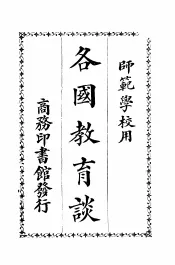 師範學校用
各國教育談
商務印書館發行